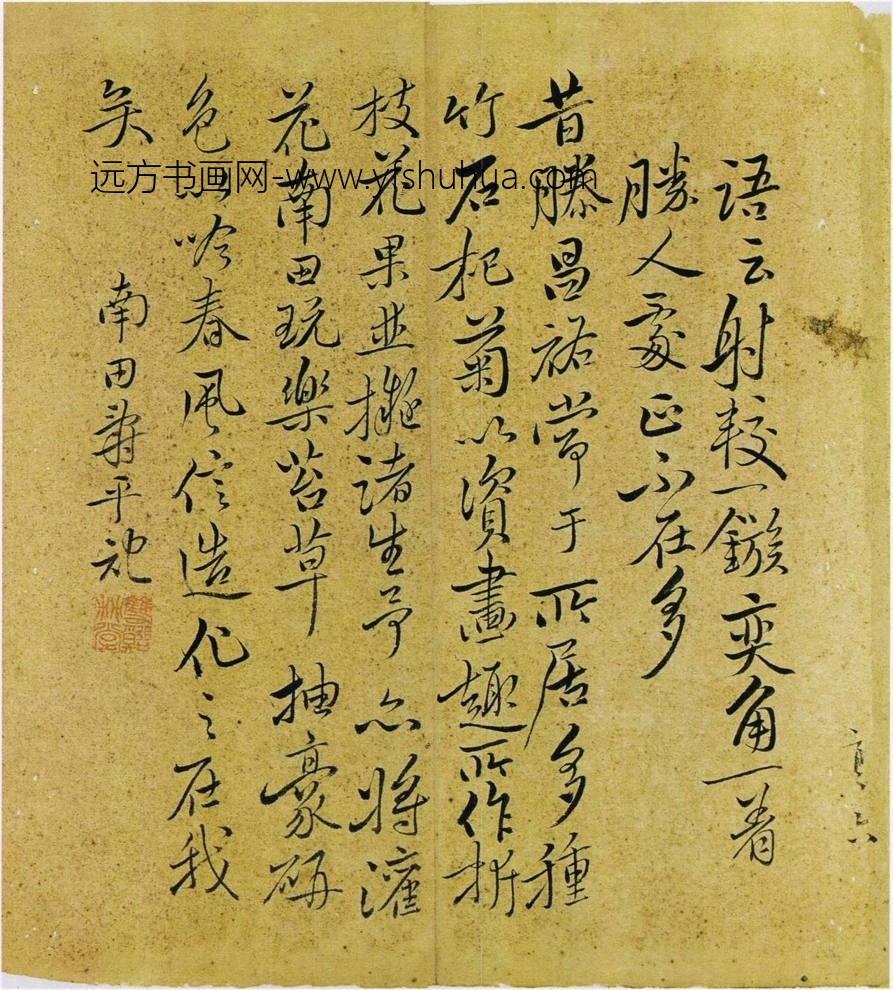 語云射較一鏃奕角一着
勝人處正不在多
昔滕昌祐常于所居多種
竹石杞菊以資畫趣所作折
枝花果並擬諸生予亦將灌
花南田玩樂苔草抽豪研
色以吟春風信造化之在我
矣
南田壽平記
远方书画网-www.yfshuhua.com